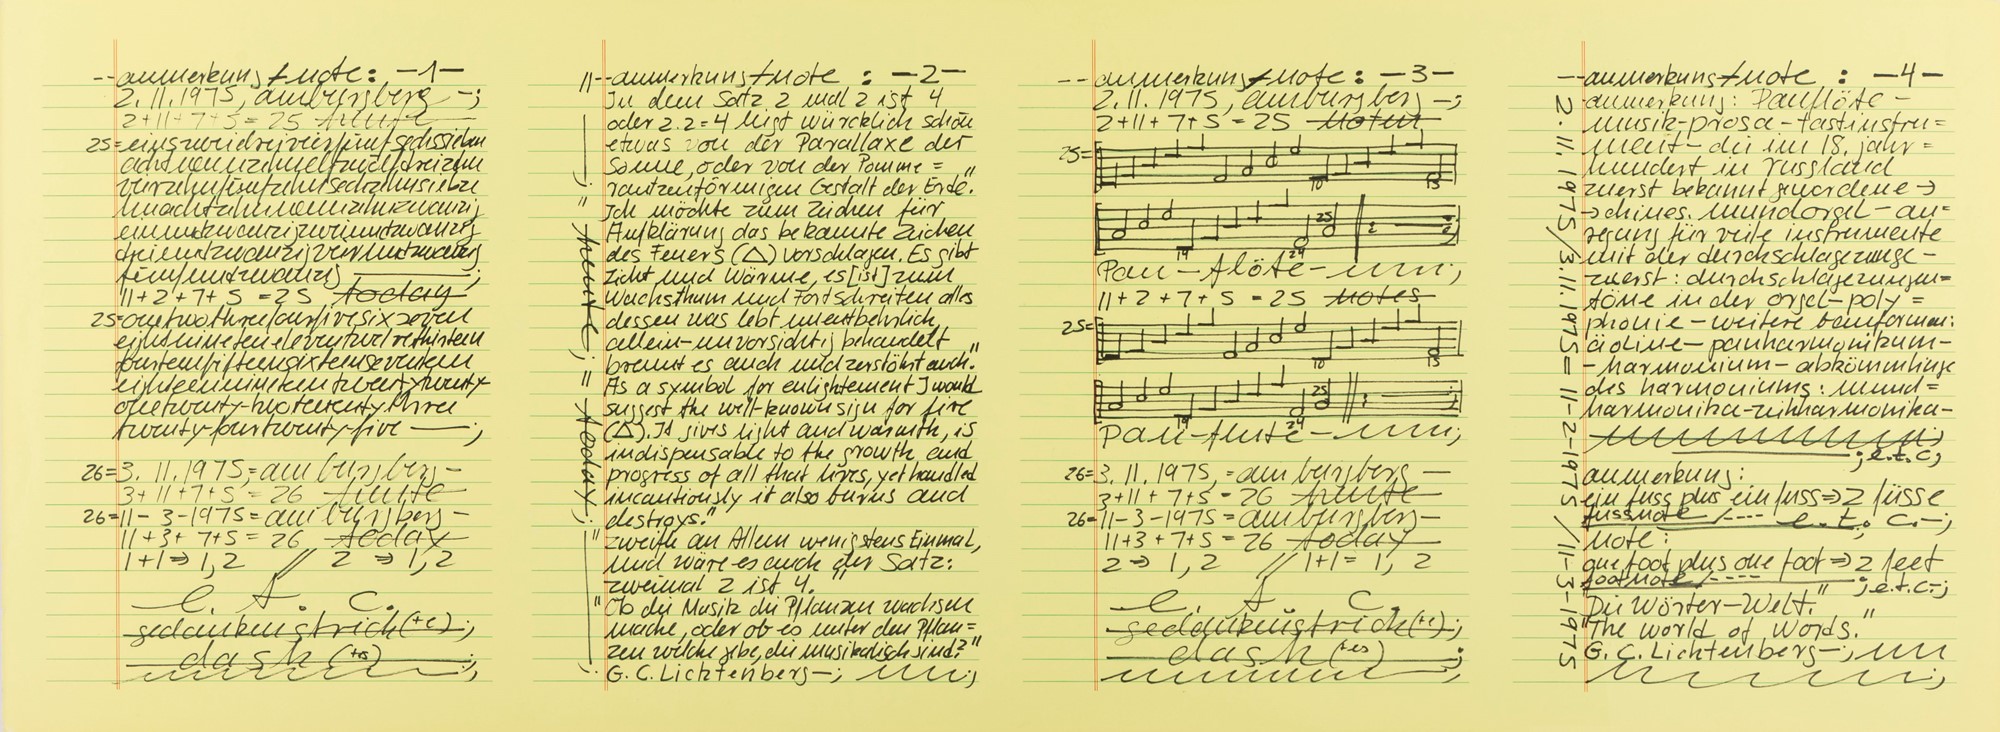 --anmerkung/note: -1-
2.11.1975, am burgberg -;
2+11+7+5=25 heute
25=einszweidreivierfünfsechssieben
achtneunzehnelfzwölfdreizehn
vierzehnfünfzehnsechzehnsiebze
hnachtzehnneunzehnzwanzig
einundzwanzigzweiundzwanzig
dreiundzwanzigvierundzwanzig
fünfundzwanzig ——;
11+2+7+5 =25 today
25=onetwothreefourfivesixseven
eightnineteneleventwelvethirteen
fourteenfifteensixteenseventeen
eighteennineteentwentytwenty
onetwenty-twotwentythree
twenty-fourtwenty-five ——;
26=3. 11.1975=am burgberg-
3+11+7+5 = 26 heute
26=11-3-1975=am burgberg-
11+3+7+5 = 26 today
1+1⇒1,2 // 2 ⇒1,2
e. t. c.
gedankenstrich(+e);
dash(+es) ;
"--anmerkung/note : -2-
In dem Satz 2 mal 2 ist 4
oder 2.2=4 liegt würcklich schon
etwas von der Parallaxe der
Sonne, oder von der Pomme=
rantzenförmigen Gestalt der Erde."
"Ich möchte zum Zeichen für
Aufklärung das bekannte Zeichen
des Feuers (△) vorschlagen. Es gibt
Licht und Wärme, es[ist]zum
Wachsthum und Fortschreiten alles
dessen was lebt unentbehrlich,
allein-unvorsichtig behandelt
brennt es auch und zerstöhrt auch."
"As a symbol for enlightement I would
suggest the well-known sign for fire
(△). It gives light and warmth, is
indispensable to the growth and
progress of all that lives, yet handled
incautiously it also burns and
destroys."
"zweifle an Allem wenigstens Einmal,
und wäre es auch der Satz:
zweimal 2 ist 4."
"Ob die Musik die Pflanzen wachsen
mache, oder ob es unter den Pflan=
zen welche gebe, die musikalisch sind?"
G. C. Lichtenberg-;
——; heute; = today;
--anmerkung/note: -3-
2.11.1975, am burgberg -;
2+11+7+5 = 25 Noten
25=
10 15
19 24 25 2 2
Pan-flöte-
11+2+7+5 = 25 notes
25=
10 15
19 24 25
Pan-flute-
26=3. 11.1975,=am burgberg -
3+11+7+5 = 26 heute
26=11-3-1975=am burgberg-
11+3+7+5 = 26 today
2 ⇒ 1, 2 // 1+1= 1, 2
e. t. c.
gedankenstrich(+e);
dash(+es) ;
--anmerkung/note : -4-
anmerkung: Panflöte-
musik-prosa-tastinstru=
ment-die im 18. jahr=
hundert in russland
zuerst bekannt gewordene→
→chines. mundorgel-an=
regung für viele instrumente
mit der durchschlagezunge-
zuerst: durchschlagezungen=
töne in der orgel-poly=
phonie-weitere bauformen:
äoline-panharmonikum-
-harmonium-abkömmlinge
des harmoniums: mund=
harmonika-ziehharmonika-
;e.t.c;
anmerkung:
ein fuss plus ein fuss⇒2 füsse
fussnote /---- e. t. c.-;
Note:
one foot plus one foot⇒2 feet
footnote /---- ;e.t.c-;
"Die Wörter-Welt."
"The World of Words."
G. C. Lichtenberg-;
2.11.1975/3.11.1975=11-2-1975/11-3-1975